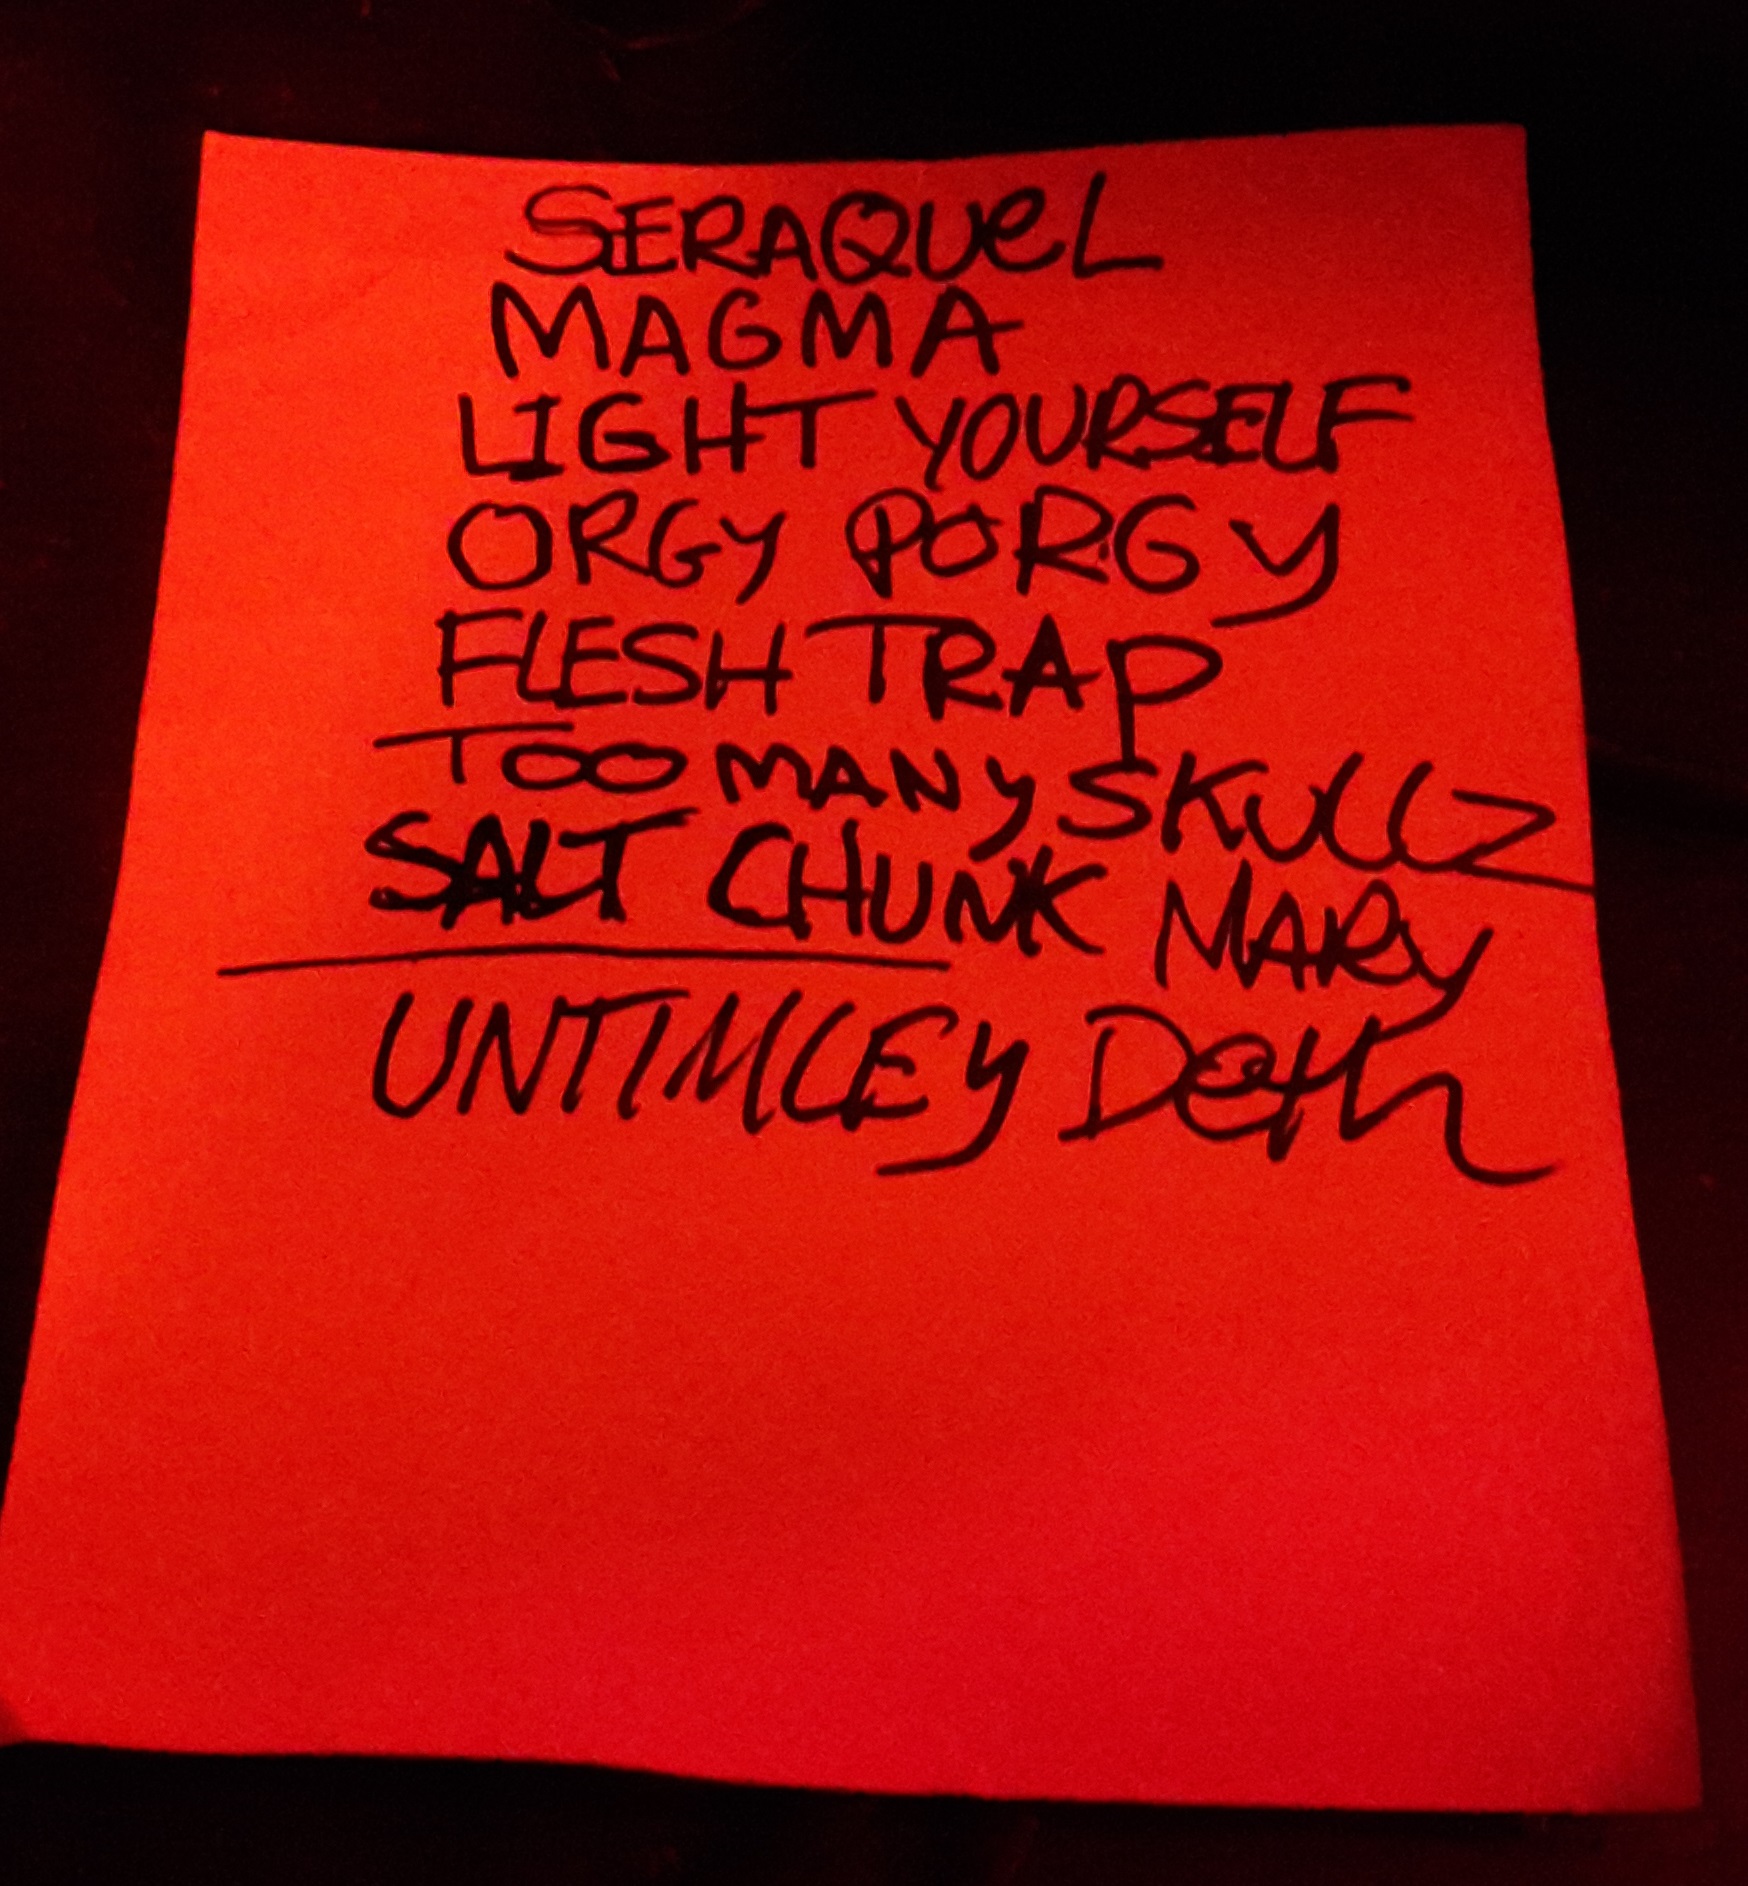 SERAQUeL
MAGMA
LIGHT YOURSELF
ORGY PORGY
FLESH TRAP
TOO MANY SKULLZ
SALT CHUNK MARY
UNTIMLEY DeTH